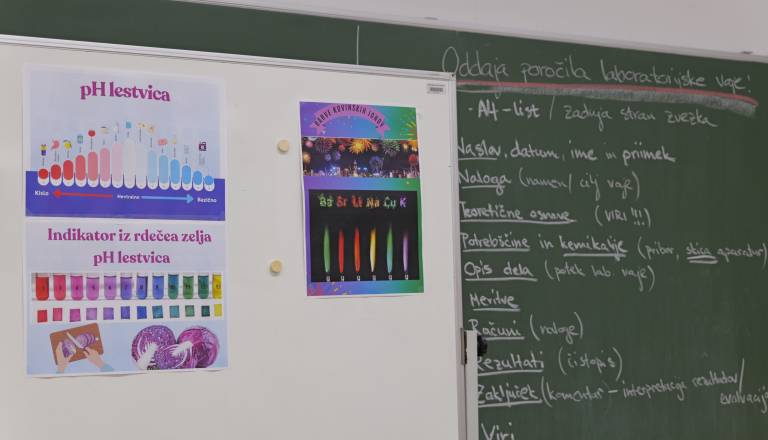 pH lestvica
Kislo
Nevtralno
Bazično
Indikator iz rdečea zelja
pH lestvica
BARVE KOVINSKIH IONOV
Ba Sr Li Na Cu K
Oddaja poročila laboratorijske vaje:
- A4-list / zadnja stran zvezka
Naslov, datum, ime in priimek
Naloga (namen/ cilj vaje)
Teoretične osnove (VIRI!!!)
Potrebščine in kemikalije (pribor, skica aparatur)
Opis dela (potek lab. vaje)
Meritve
Računi (naloge)
Rezultati (čistopis)
Zaključek (komentar - interpretacija rezultatov/
evalvacija
Viri